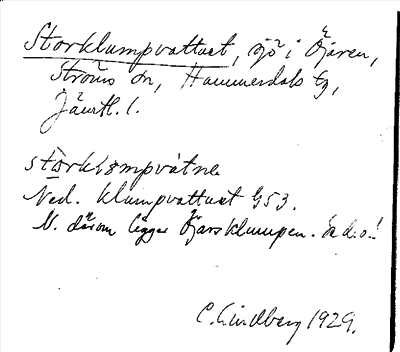 Storklumpvattnet, sjö i Öjaren,
Ströms sn, Hammerdals tg,
Jämtl. l.
stòrklømpvàtne
Ned. Klumpvattnet G53.
N. därom ligger Öjarsklumpen. Se d.o!
C. Lindberg 1929.